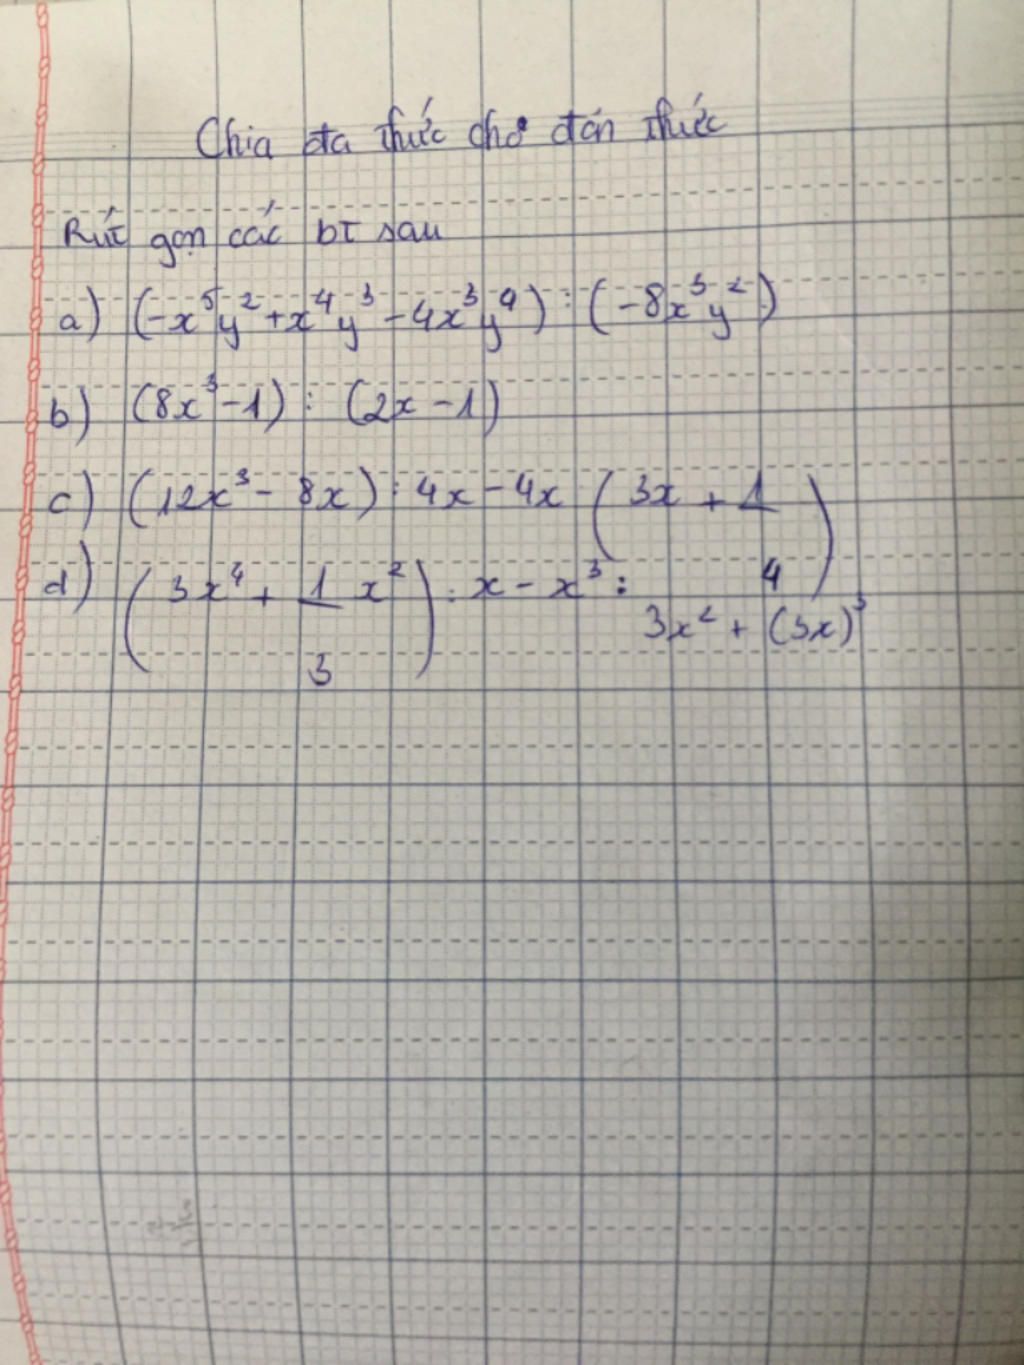 Chia đa thức cho đơn thức
Rút gọn các bt sau
a) (-x⁵y² + x⁴y³ - 4x³y⁴) : (-8x³y²)
b) (8x³ - 1) : (2x - 1)
c) (12x³ - 8x) : 4x - 4x (3x + 1/4)
d) (3x⁴ + 1/3 x²) : x - x³ : 3x² + (3x)³